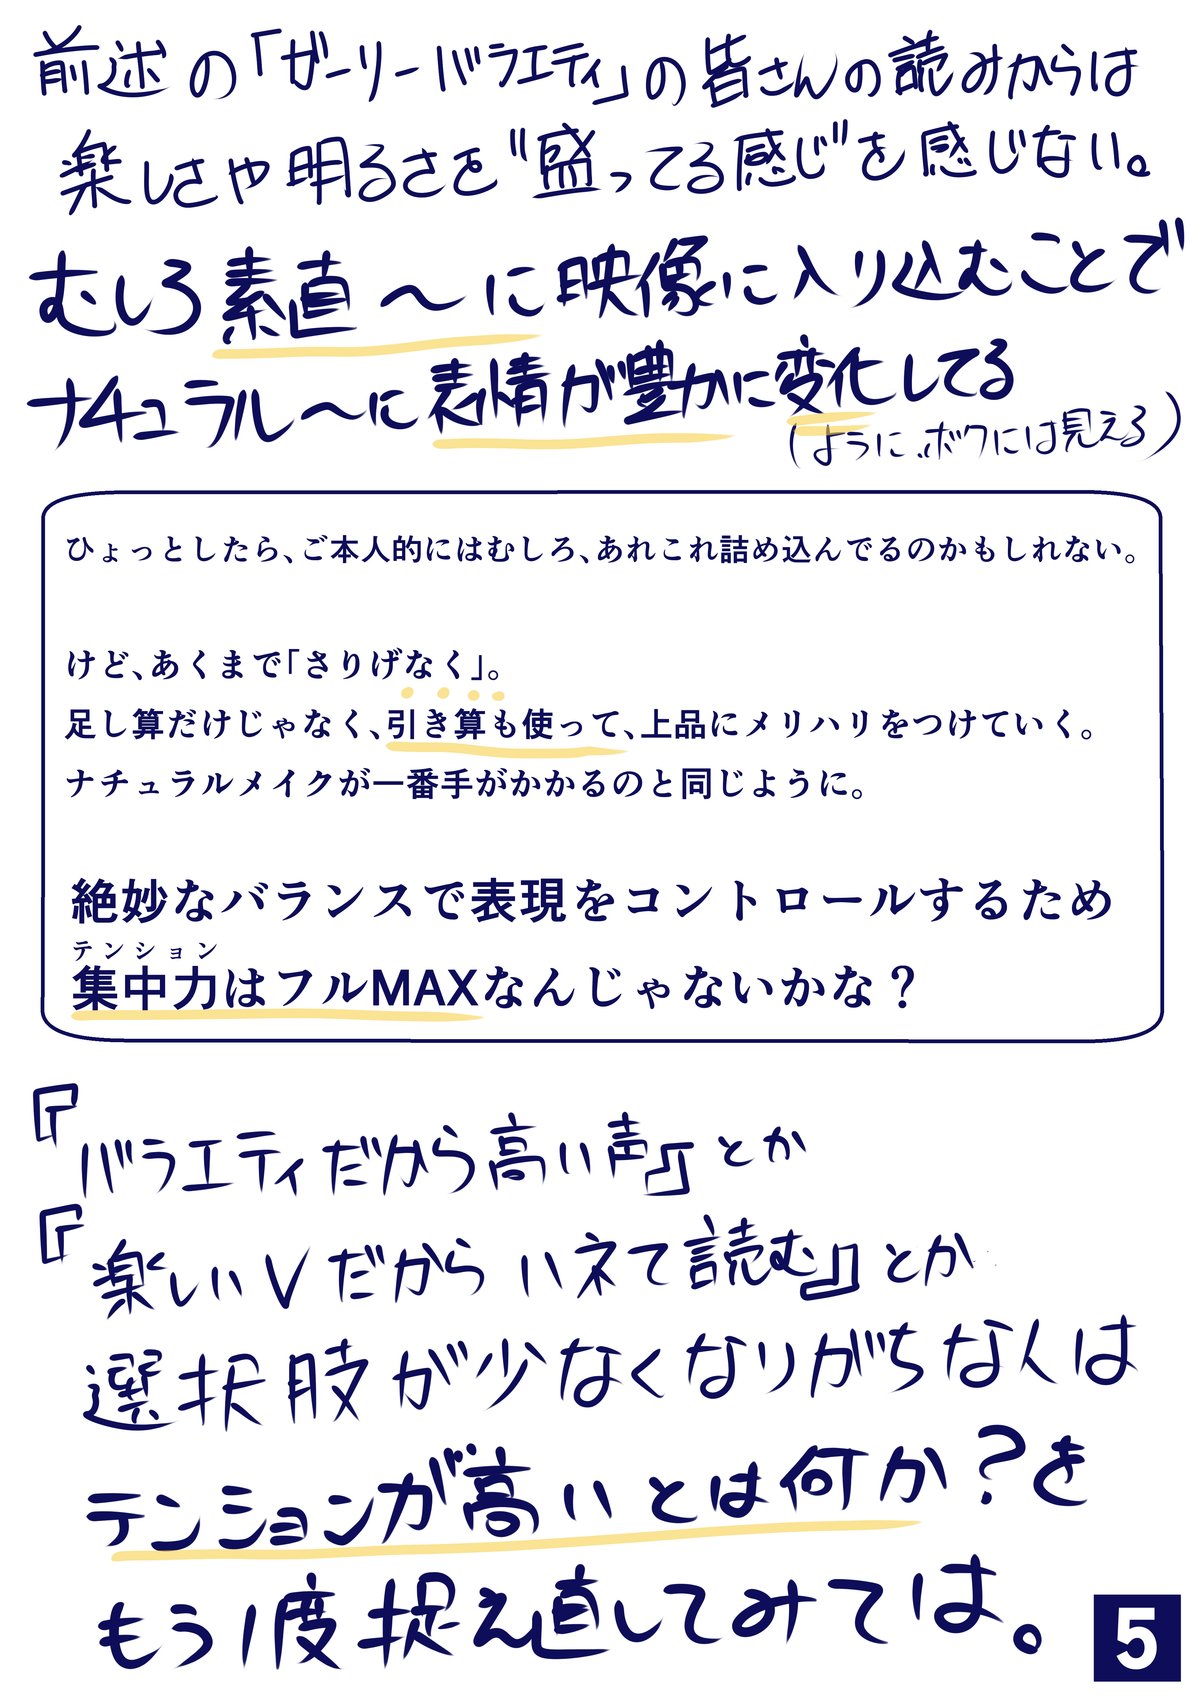 前述の「ガーリーバラエティ」の皆さんの読みからは
楽しさや明るさを"盛ってる感じ"を感じない。
むしろ素直〜に映像に入り込むことで
ナチュラル〜に表情が豊かに変化してる
(ように、ボクには見える)
ひょっとしたら、ご本人的にはむしろ、あれこれ詰め込んでるのかもしれない。
けど、あくまで「さりげなく」。
足し算だけじゃなく、引き算も使って、上品にメリハリをつけていく。
ナチュラルメイクが一番手がかかるのと同じように。
絶妙なバランスで表現をコントロールするため
テンション
集中力はフルMAXなんじゃないかな？
『バラエティだから高い声』とか
『楽しいVだからハネて読む』とか
選択肢が少なくなりがちな人は
テンションが高いとは何か？を
もう1度捉え直してみては。
5